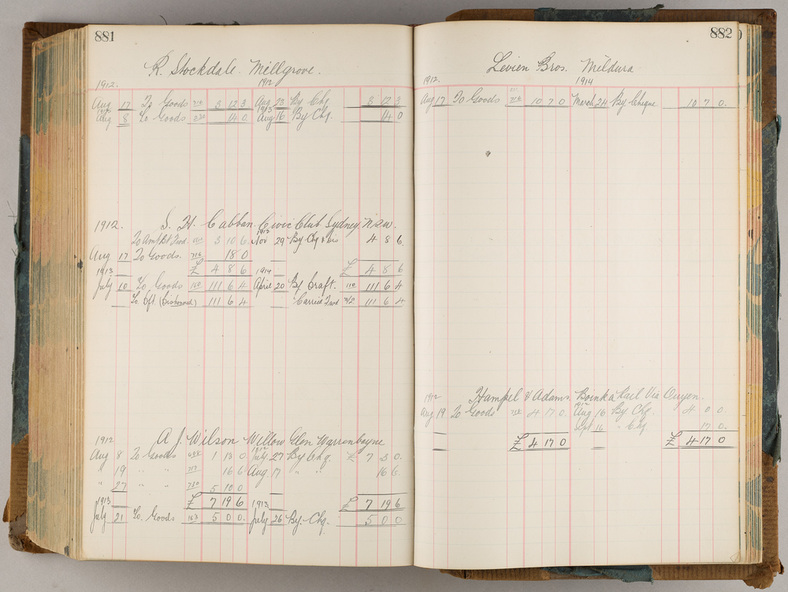 881
R. Stockdale. Millgrove.
1912. 1912
Aug 17 To Goods 8 12 3 Aug 23 By Chq 8 12 3
Aug 8 To Goods 14 0 Aug 16 By Chq. 14 0
1912. S. H. Cubban Civic Club Sydney, NSW.
3 10 6 Nov 29 By Chq 4 8 6
Aug 17 To Goods 18 0
1913 £ 4 8 6 1914 £ 4 8 6
July 20 To Goods 111 6 4 April 20 By Draft. 111 6 4
To Dft (Dishonored) 111 6 4 Carried Fwd 111 6 4
1912 A. J. Wilson Willow Glen Warrambayne
Aug 8 To Goods 1 13 0 July 27 By Chq. £ 7 3 0
19 " " 16 6 Aug 17 " " 16 6
" 27 " " 5 10 0
1913 £ 7 19 6 1913 £ 7 19 6
July 21 To Goods 5 0 0 July 26 By Chq. 5 0 0
882
Levien Bros. Mildura
1912. 1914
Aug 17 To Goods 10 7 0 March 24 By Cheque 10 7 0
1912 Hampel & Adams Boinka Rail Via Ouyen
Aug 19 To Goods 4 17 0 Aug 16 By Chq 4 0 0
Sept 16 " Chq 17 0
£ 4 17 0 £ 4 17 0